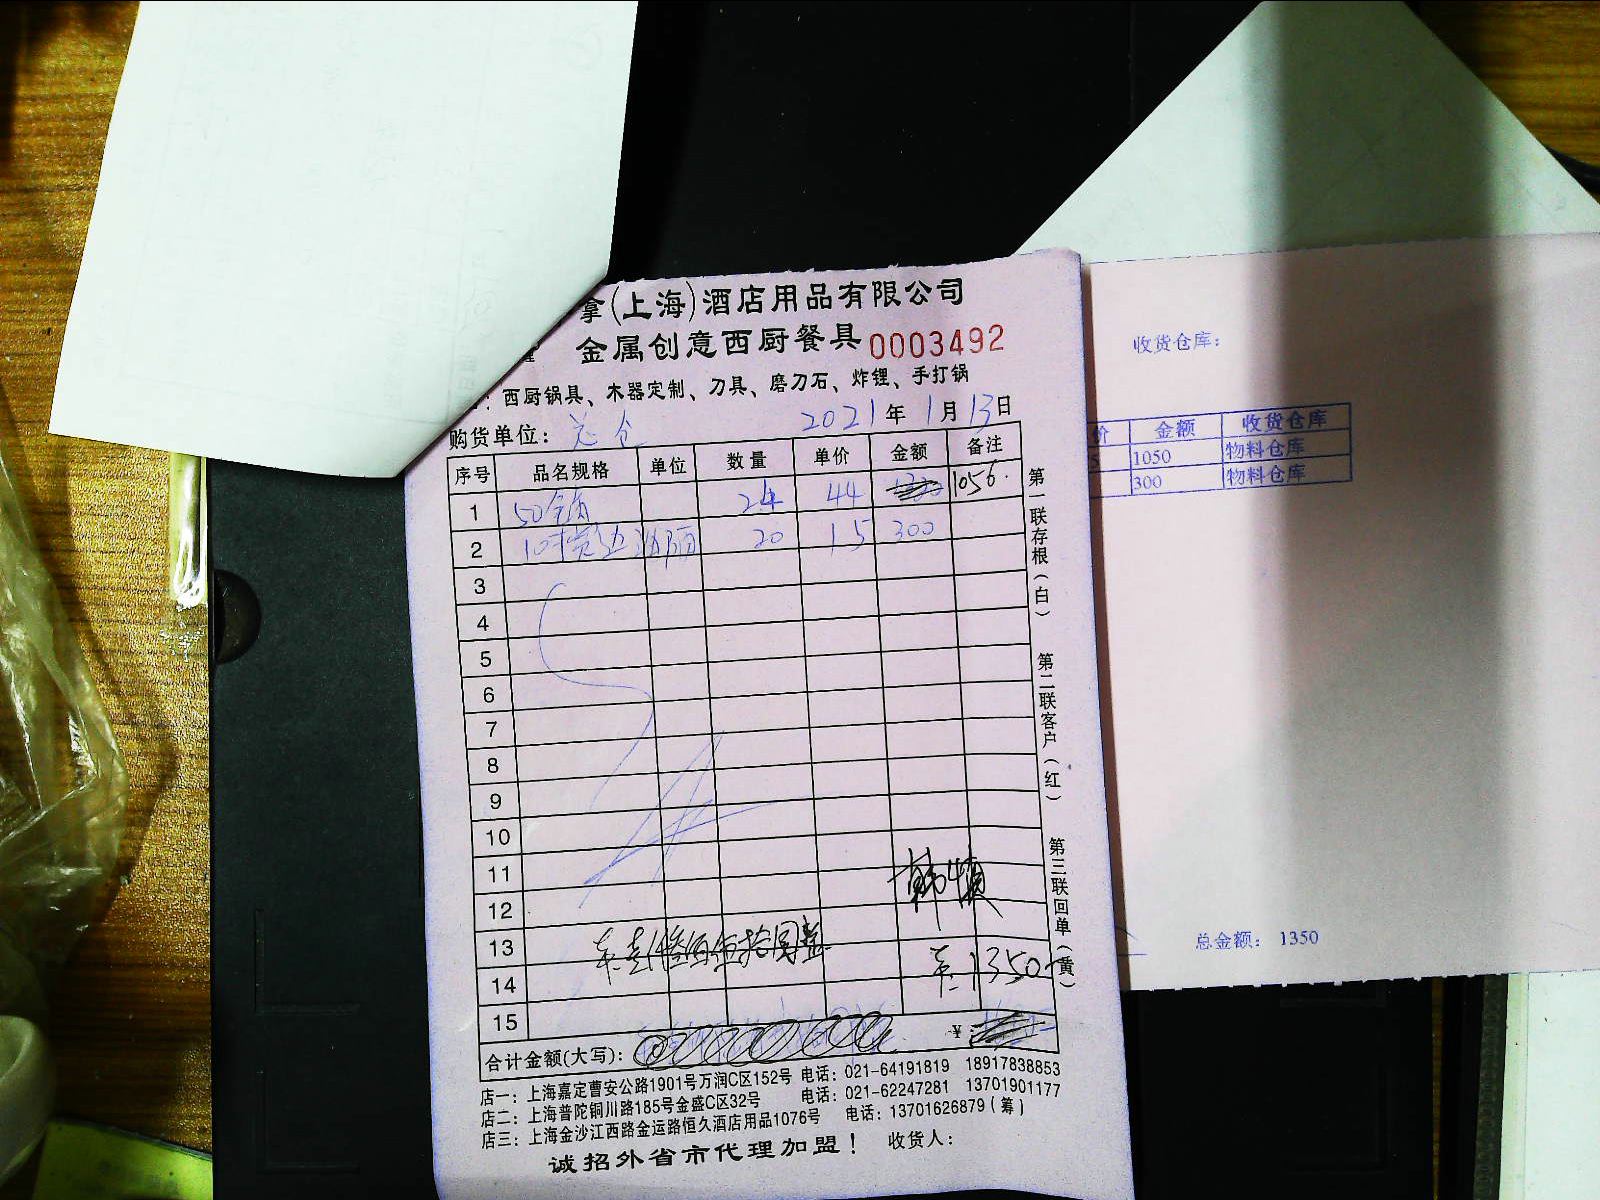 拿(上海)酒店用品有限公司
金属创意西厨餐具 0003492
：西厨锅具、木器定制、刀具、磨刀石、炸锂、手打锅
购货单位： 总仓 2021年1月13日
序号 品名规格 单位 数量 单价 金额 备注
1 50 24 44 1056.
2 10寸宽边汤隔 20 15 300
3
4
5
6
7
8
9
10
11
12
13 壹仟叁佰伍拾圆整
14 1350
15
合计金额(大写)： ¥:
店一：上海嘉定曹安公路1901号万润C区152号 电话：021-64191819 18917838853
店二：上海普陀铜川路185号金盛C区32号 电话：021-62247281 13701901177
店三：上海金沙江西路金运路恒久酒店用品1076号 电话：13701626879(筹)
诚招外省市代理加盟！ 收货人：
第一联存根(白)
第二联客户(红)
第三联回单(黄)
收货仓库：
价 金额 收货仓库
5 1050 物料仓库
300 物料仓库
总金额： 1350